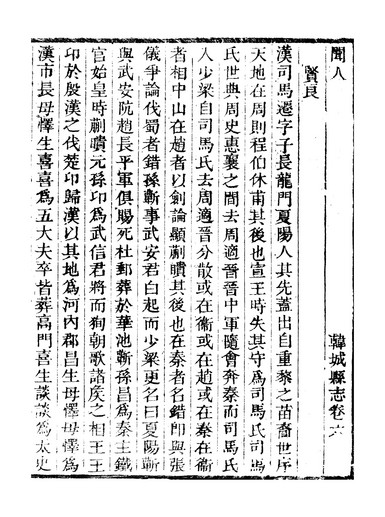 聞人
韓城縣志卷六
賢良
漢司馬遷字子長龍門夏陽人其先蓋出自重黎之苗裔世序
天地在周則程伯休甫其後也宣王時失其守爲司馬氏司馬
氏世典周史惠襄之間去周適晉晉中軍隨會奔秦而司馬氏
入少梁自司馬氏去周適晉分散或在衞或在趙或在秦在衞
者相中山在趙者以劍論顯蒯聵其後也在秦者名錯卽與張
儀爭論伐蜀者錯孫靳事武安君白起而少梁更名曰夏陽靳
與武安阬趙長平軍俱賜死杜郵葬於華池靳孫昌爲秦主鐵
官始皇時蒯聵元孫卬爲武信君將而狥朝歌諸矦之相王王
卬於殷漢之伐楚卬歸漢以其地爲河內郡昌生母懌母懌爲
漢市長母懌生喜喜爲五大夫卒皆葬高門喜生談談爲太史